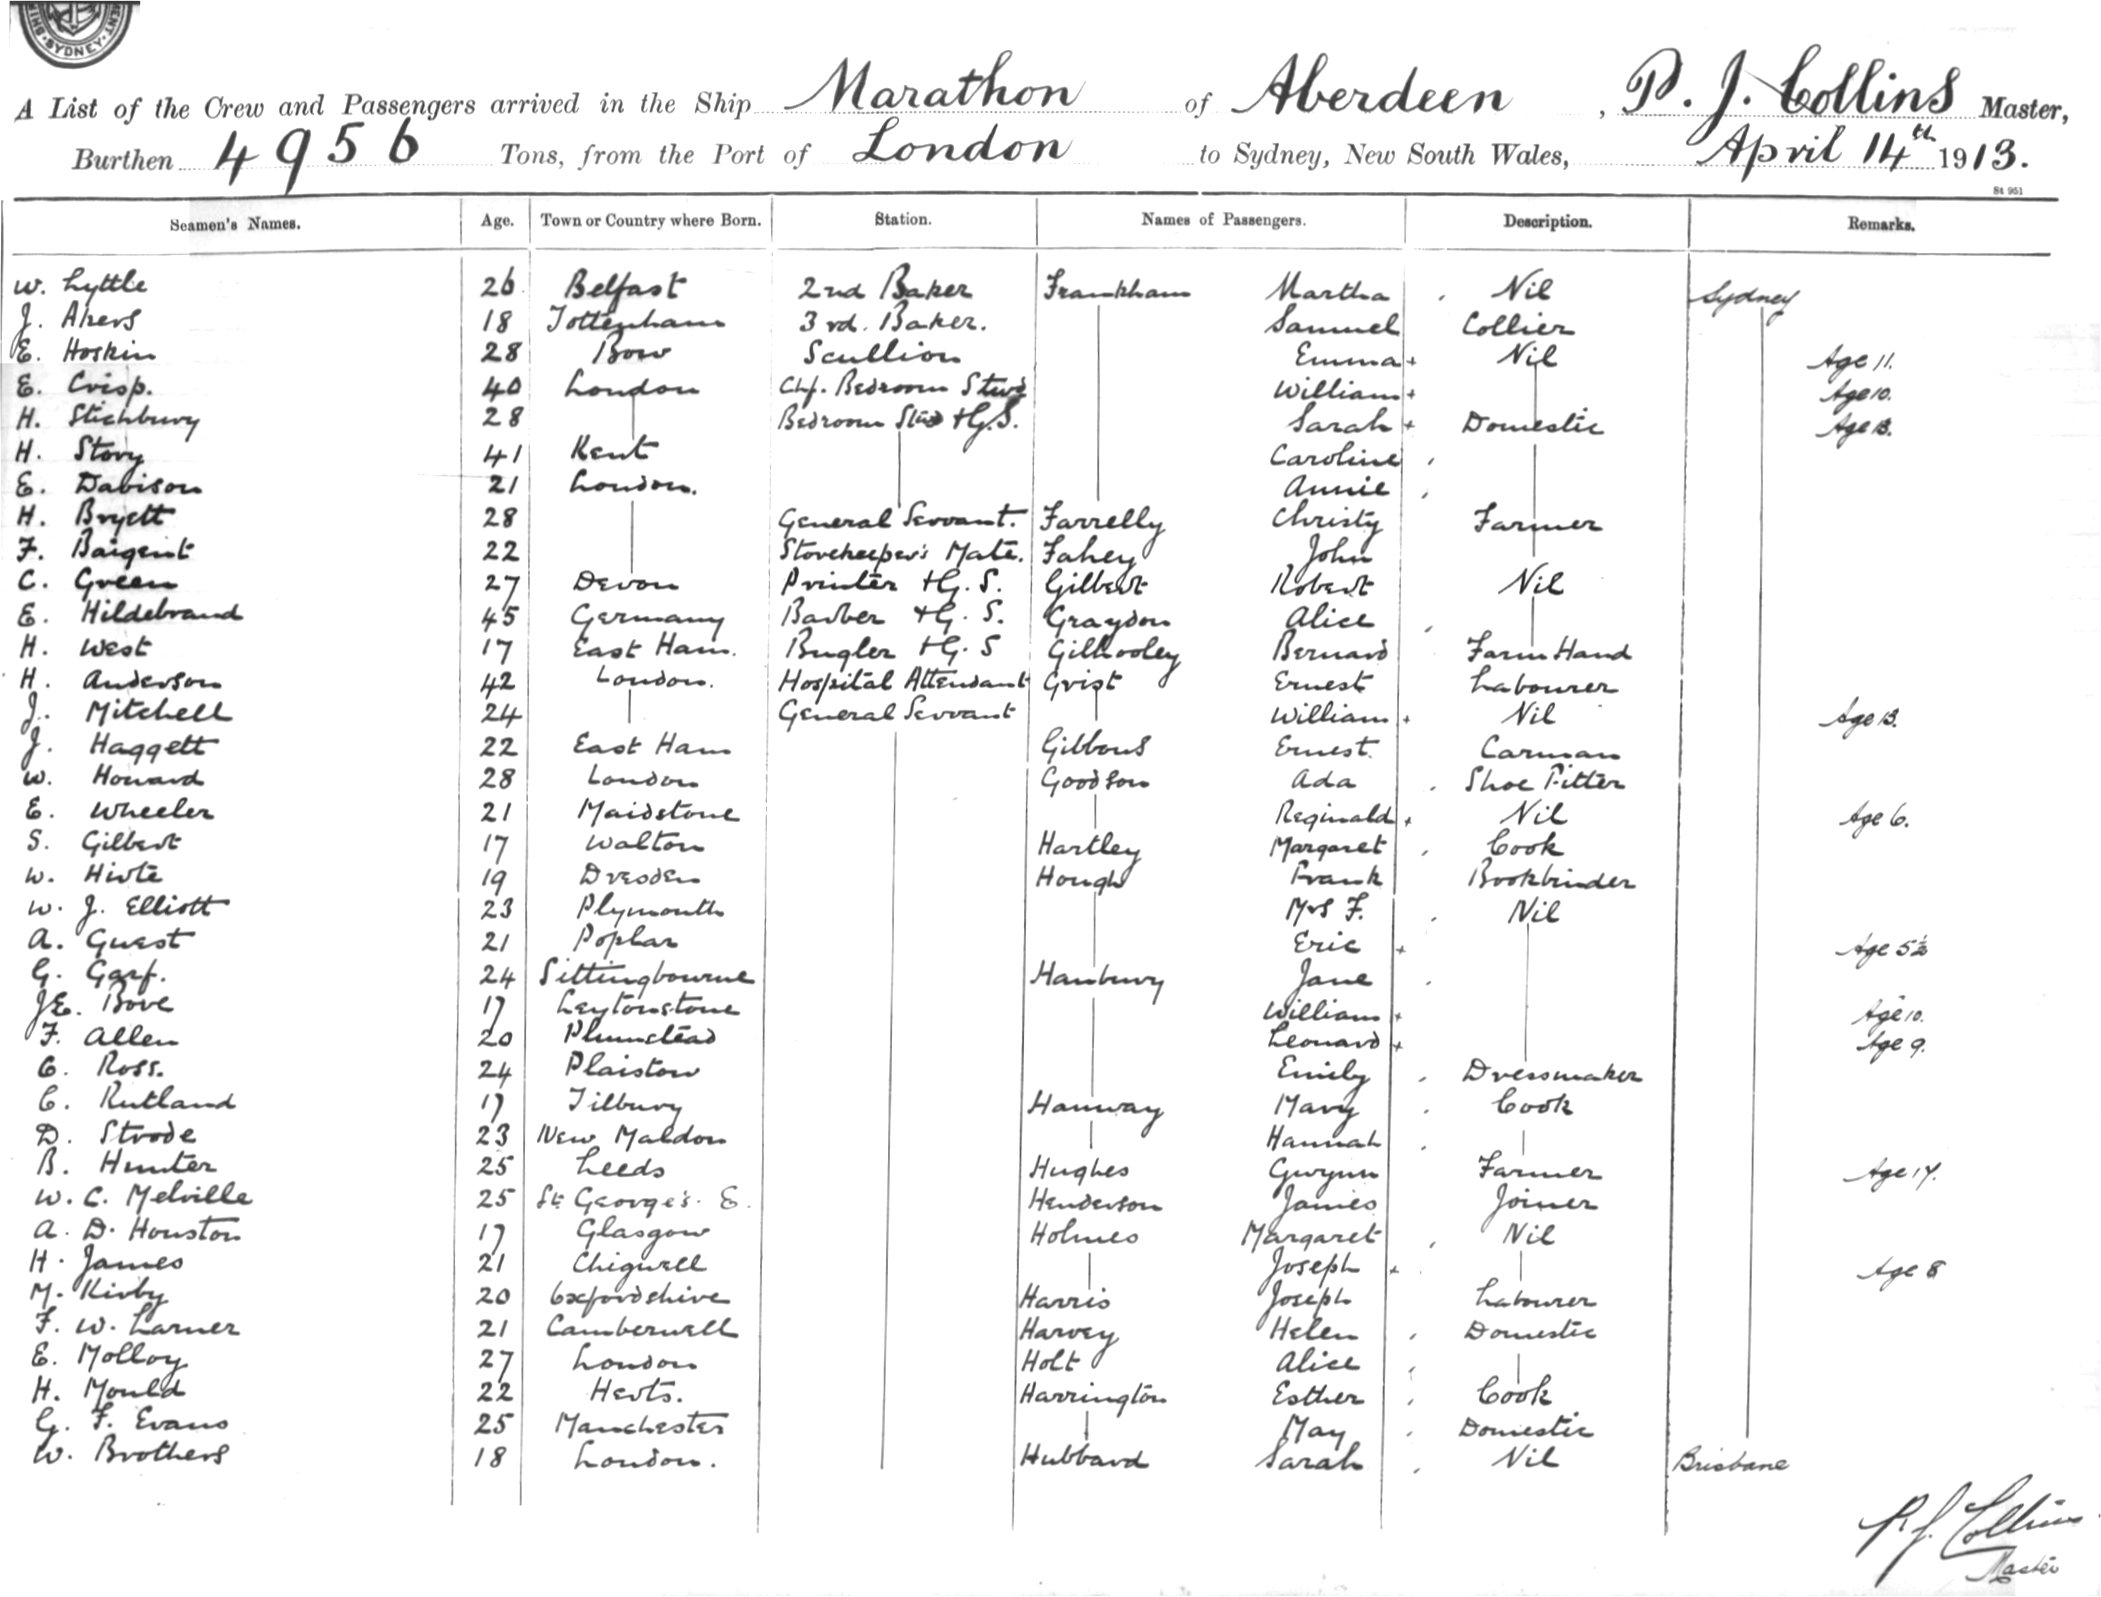 MENT · SYDNEY · SHIP
A List of the Crew and Passengers arrived in the Ship Marathon of Aberdeen, P. J. Collins Master,
Burthen 4956 Tons, from the Port of London to Sydney, New South Wales, April 14th 1913.
St 951
Seamen's Names. Age. Town or Country where Born. Station. Names of Passengers. Description. Remarks.
W. Lyttle 26 Belfast 2nd Baker Frankham Martha Nil Sydney
J. Akers 18 Tottenham 3rd. Baker. Samuel Collier
E. Hoskin 28 Bow Scullion Emma + Nil Age 11.
E. Crisp. 40 London Chf. Bedroom Stwd William + Age 10.
H. Stichbury 28 Bedroom Stwd + G.S. Sarah + Domestic Age 13.
H. Story 41 Kent Caroline
E. Davison 21 London. Annie
H. Bryett 28 General Servant. Farrelly Christy Farmer
F. Baigent 22 Storekeeper's Mate. Fahey John
C. Green 27 Devon Printer + G. S. Gilbert Robert Nil
E. Hildebrand 45 Germany Barber + G. S. Graydon Alice
H. West 17 East Ham. Bugler + G. S Gilhooley Bernard Farm Hand
H. Anderson 42 London. Hospital Attendant Grist Ernest Labourer
J. Mitchell 24 General Servant William + Nil Age 13.
J. Haggett 22 East Ham Gibbons Ernest. Carman
W. Howard 28 London Goodson Ada Shoe Fitter
E. Wheeler 21 Maidstone Reginald + Nil Age 6.
S. Gilbert 17 Walton Hartley Margaret Cook
W. Hirte 19 Dresden Hough Frank Bookbinder
W. J. Elliott 23 Plymouth Mrs F. Nil
A. Guest 21 Poplar Eric + Age 5½
G. Garf. 24 Sittingbourne Hanbury Jane
J.E. Bove 17 Leytonstone William + Age 10.
F. Allen 20 Plumstead Leonard + Age 9.
C. Ross. 24 Plaistow Emily Dressmaker
C. Rutland 17 Tilbury Hanway Mary Cook
D. Strode 23 New Maldon Hannah
B. Hunter 25 Leeds Hughes Gwynn Farmer Age 17.
W. C. Melville 25 St. George's. E. Henderson James Joiner
A. D. Houston 17 Glasgow Holmes Margaret Nil
H. James 21 Chigwell Joseph + Age 8
M. Kirby 20 Oxfordshire Harris Joseph Labourer
F. W. Larner 21 Camberwell Harvey Helen Domestic
E. Molloy 27 London Holt Alice
H. Mould 22 Herts. Harrington Esther Cook
G. F. Evans 25 Manchester May Domestic
W. Brothers 18 London. Hubbard Sarah Nil Brisbane
P. J. Collins
Master